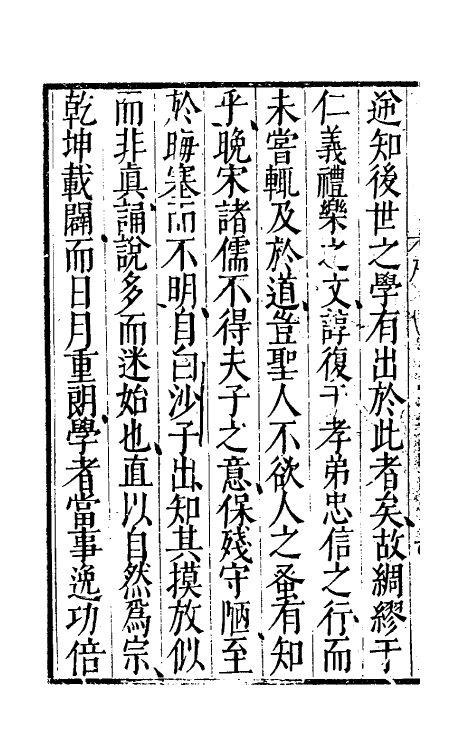 逆知後世之學有出於此者矣故綢繆于
仁義禮樂之文諄復于孝弟忠信之行而
未嘗輒及於道豈聖人不欲人之蚤有知
乎晚宋諸儒不得夫子之意保殘守陋至
於晦塞而不明自白沙子出知其摸放似
而非真誦說多而迷始也直以自然爲宗
乾坤載闢而日月重朗學者當事逸功倍